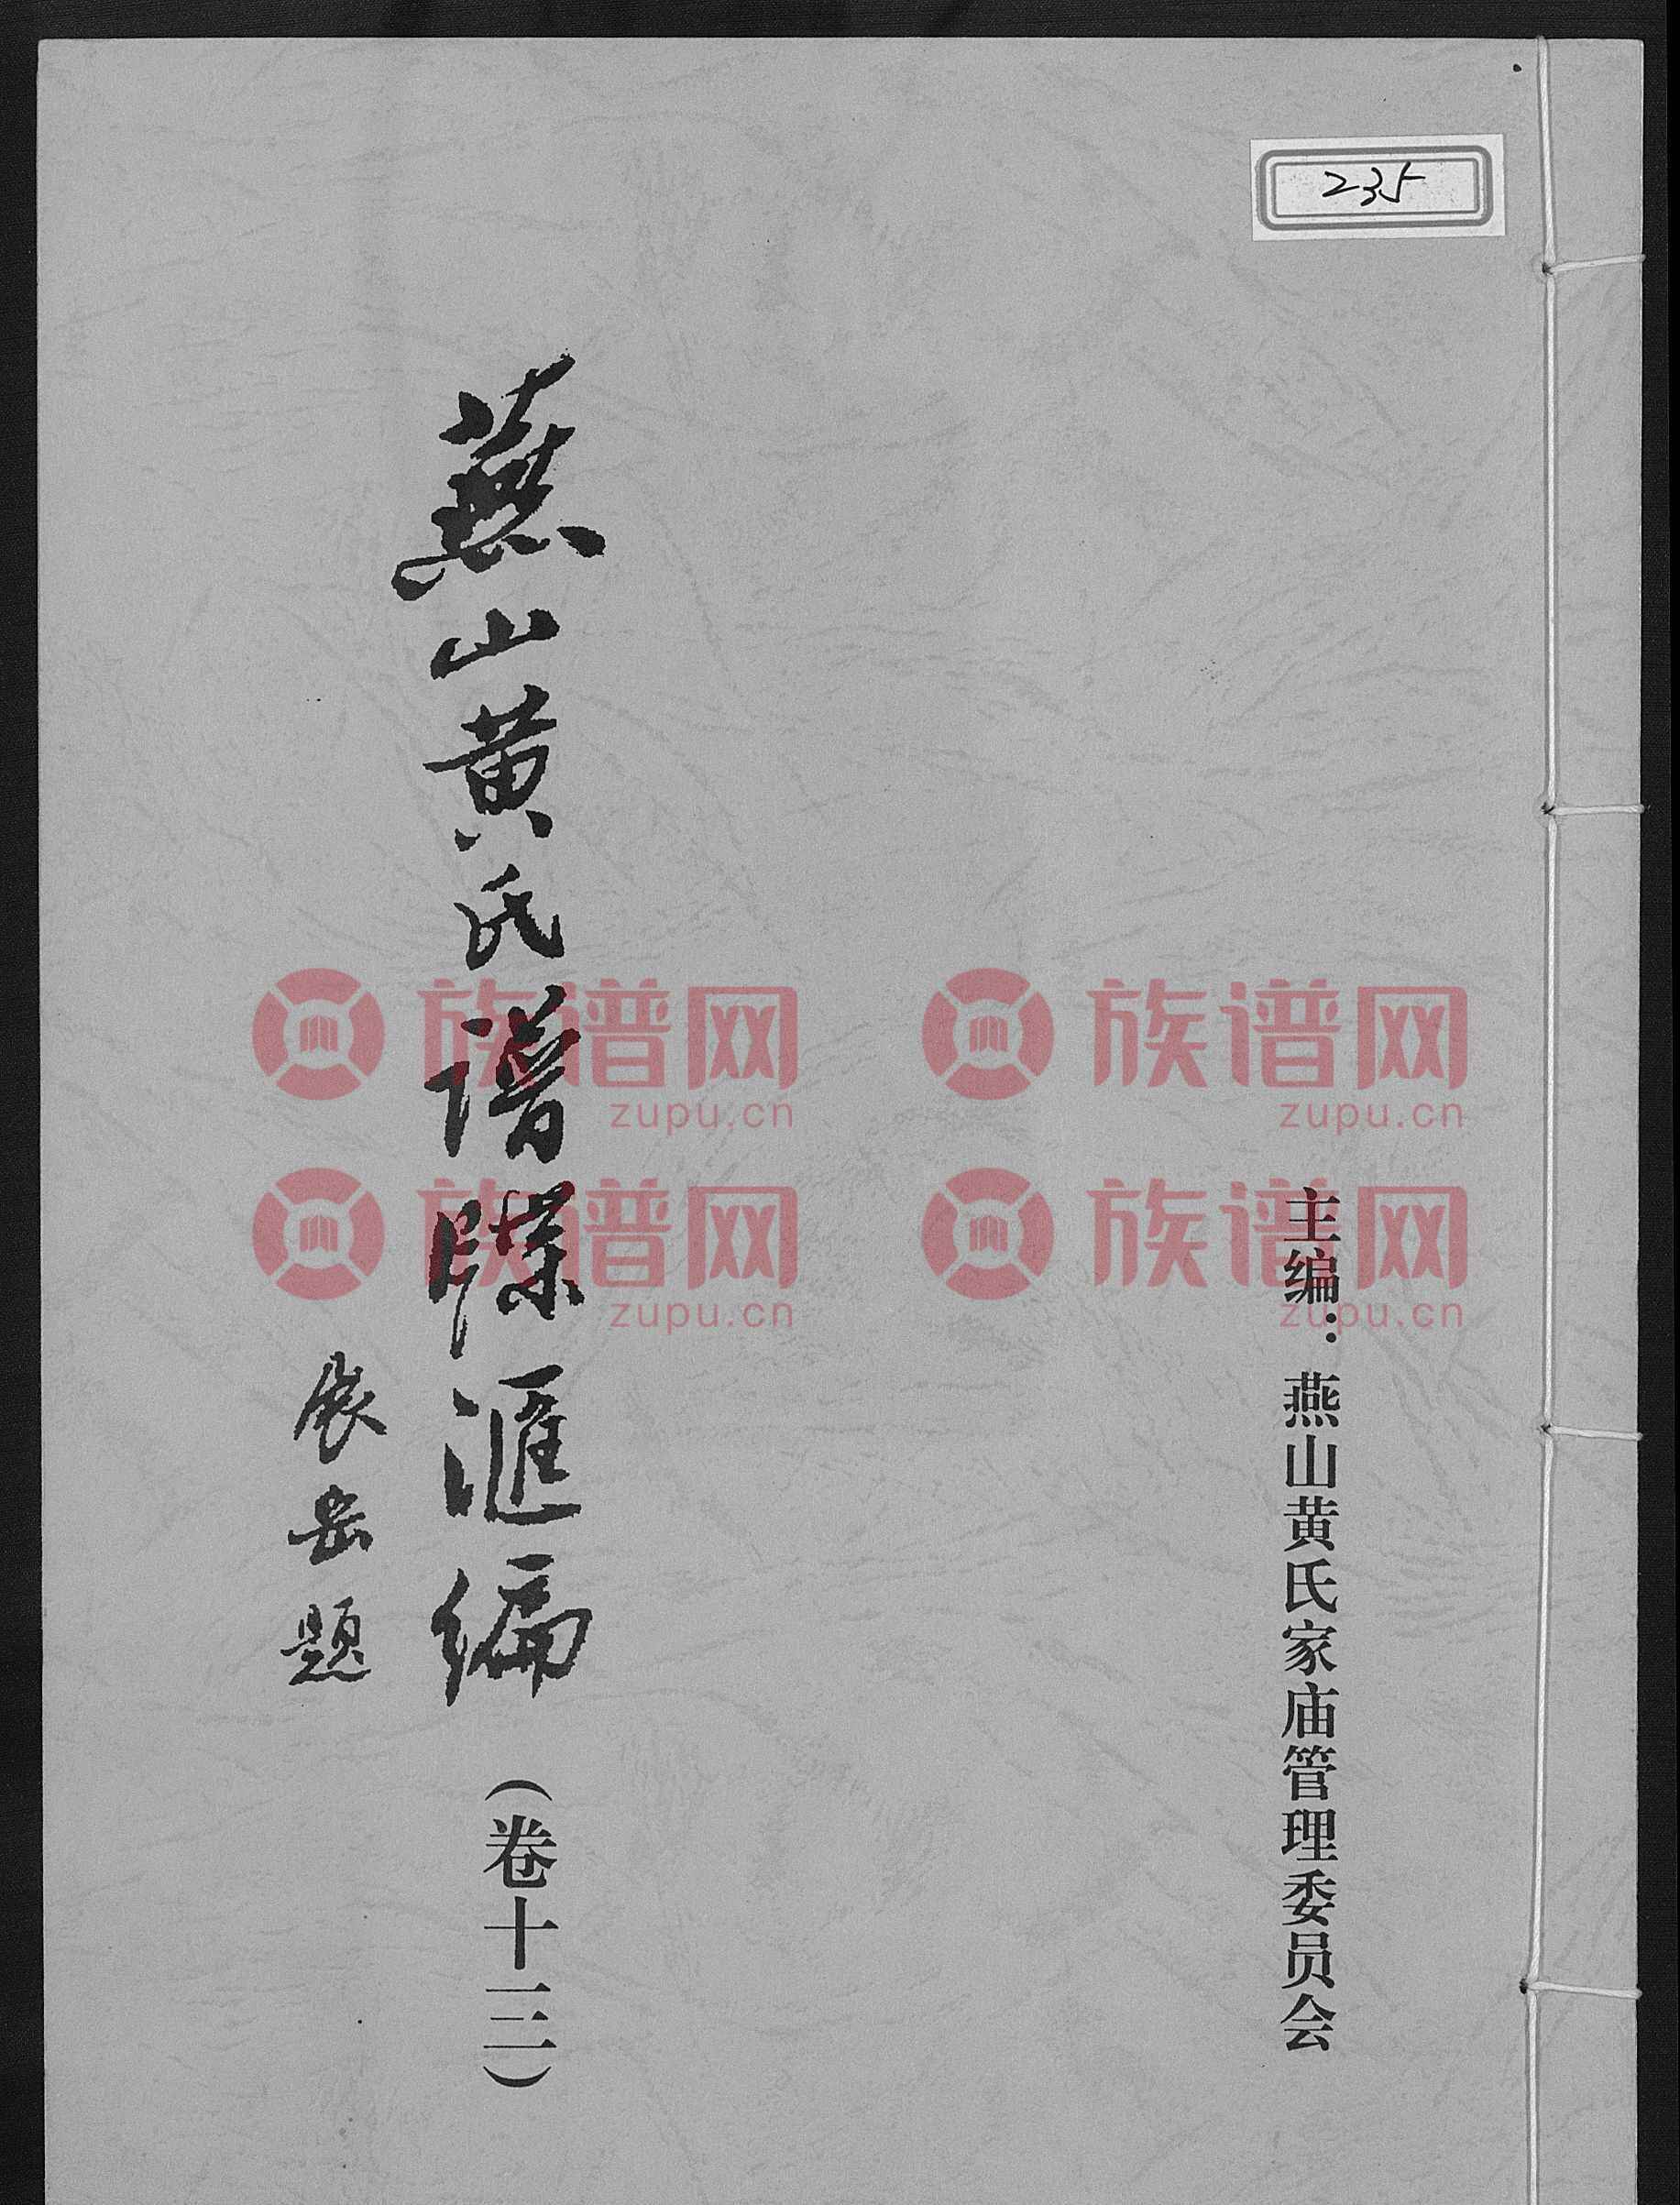 235
主编：燕山黄氏家庙管理委员会
燕山黄氏譜牒滙编
（卷十三）
展岳题
族谱网
zupu.cn
族谱网
zupu.cn
族谱网
zupu.cn
族谱网
zupu.cn